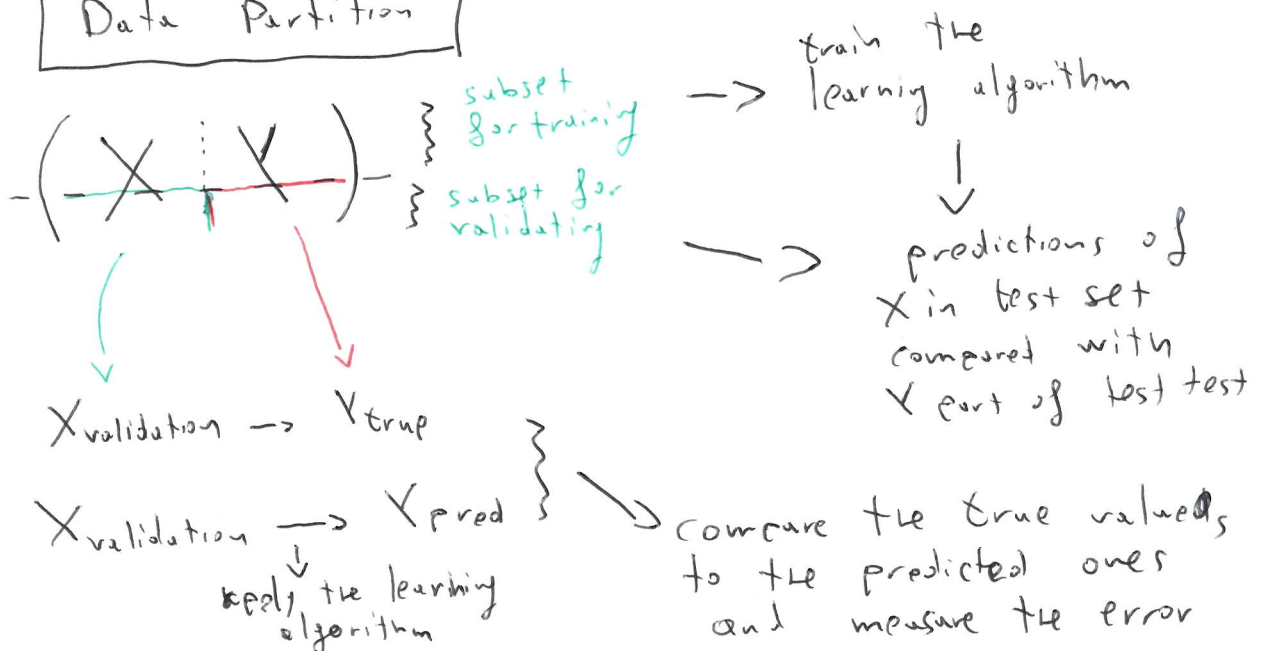 Data Partition
( X Y )
subset
for training
subset for
validating
-> train the
learning algorithm
predictions of
X in test set
compared with
Y part of test test
Xvalidation -> Ytrue
Xvalidation -> Ypred
apply the learning
algorithm
compare the true values
to the predicted ones
and measure the error